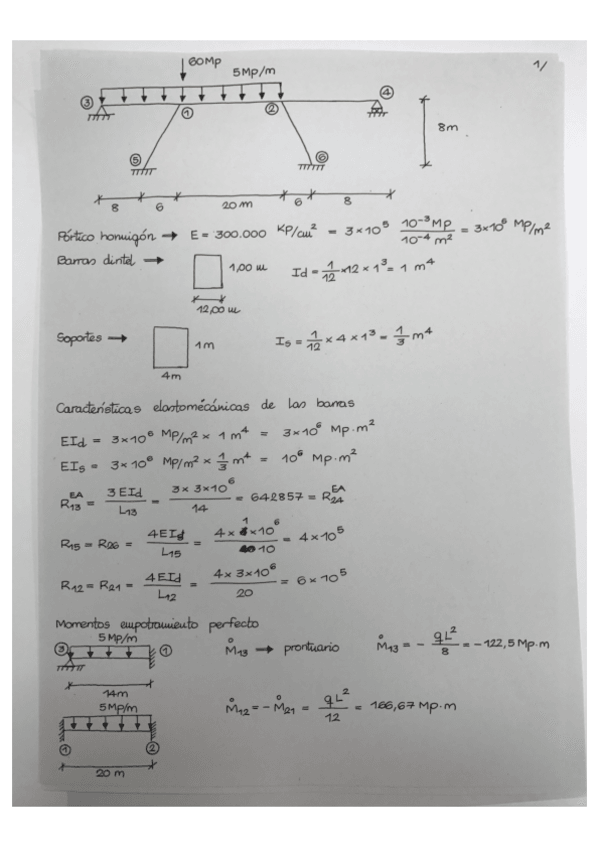 1/
60Mp
5Mp/m
③ ① ② ④
⑤ ⑥
8m
8 6 20 m 6 8
Pórtico hormigón → E = 300.000 KP/cm² = 3×10⁵ 10⁻³ Mp / 10⁻⁴ m² = 3×10⁶ Mp/m²
Barras dintel → 1,00 m Id = 1/12 × 12 × 1³ = 1 m⁴
12,00 m
Soportes → 1m Is = 1/12 × 4 × 1³ = 1/3 m⁴
4m
Características elastomécánicas de las barras
EId = 3×10⁶ Mp/m² × 1 m⁴ = 3×10⁶ Mp·m²
EIs = 3×10⁶ Mp/m² × 1/3 m⁴ = 10⁶ Mp·m²
R₁₃ᴱᴬ = 3EId / L₁₃ = 3×3×10⁶ / 14 = 642857 = R₂₄ᴱᴬ
R₁₅ = R₂₆ = 4EId / L₁₅ = 4×1×10⁶ / 10 = 4×10⁵
R₁₂ = R₂₁ = 4EId / L₁₂ = 4×3×10⁶ / 20 = 6×10⁵
Momentos empotramiento perfecto
5 Mp/m
③ ① M̊₁₃ → prontuario M̊₁₃ = - qL² / 8 = -122,5 Mp·m
14m
5Mp/m
M̊₁₂ = - M̊₂₁ = qL² / 12 = 166,67 Mp·m
① ②
20 m